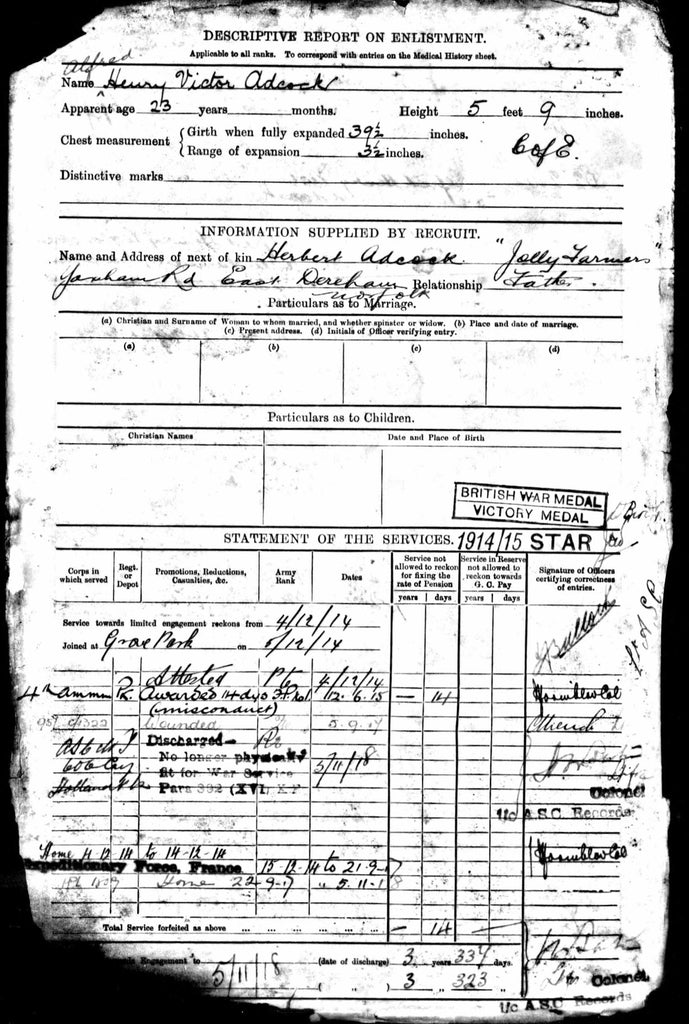 DESCRIPTIVE REPORT ON ENLISTMENT.
Applicable to all ranks. To correspond with entries on the Medical History sheet.
Alfred
Name Henry Victor Adcock
Apparent age 23 years months. Height 5 feet 9 inches.
Chest measurement { Girth when fully expanded 39½ inches.
Range of expansion 3½ inches. C of E.
Distinctive marks
INFORMATION SUPPLIED BY RECRUIT.
Name and Address of next of kin Herbert Adcock "Jolly Farmers"
Yaxham Rd East Dereham Relationship Father.
Norfolk
Particulars as to Marriage.
(a) Christian and Surname of Woman to whom married, and whether spinster or widow. (b) Place and date of marriage.
(c) Present address. (d) Initials of Officer verifying entry.
(a) (b) (c) (d)
Particulars as to Children.
Christian Names Date and Place of Birth
BRITISH WAR MEDAL
VICTORY MEDAL
STATEMENT OF THE SERVICES. 1914/15 STAR
Corps in which served Regt. or Depot Promotions, Reductions, Casualties, &c. Army Rank Dates Service not allowed to reckon for fixing the rate of Pension Service in Reserve not allowed to reckon towards G. C. Pay Signature of Officers certifying correctness of entries.
years days years days
Service towards limited engagement reckons from 4/12/14
Joined at Grove Park on 5/12/14
Attested Pte 4/12/14
4th Ammn Pk. Awarded 14 days F.P. No 1 12.6.15 — 14
(misconduct)
Wounded 5.9.17
Discharged
No longer physically 5/11/18
fit for War Service
Para 392 (XVI) K.R.
Colonel
i/c A.S.C. Records
Home 4.12.14 to 14-12-14
Expeditionary Force, France. 15-12-14 to 21-9-17
Home 22-9-17 " 5.11.18
Total Service forfeited as above — 14
Engagement to 5/11/18 (date of discharge) 3 years 337 days.
( " ) 3 " 323 "
Colonel
i/c A.S.C Records